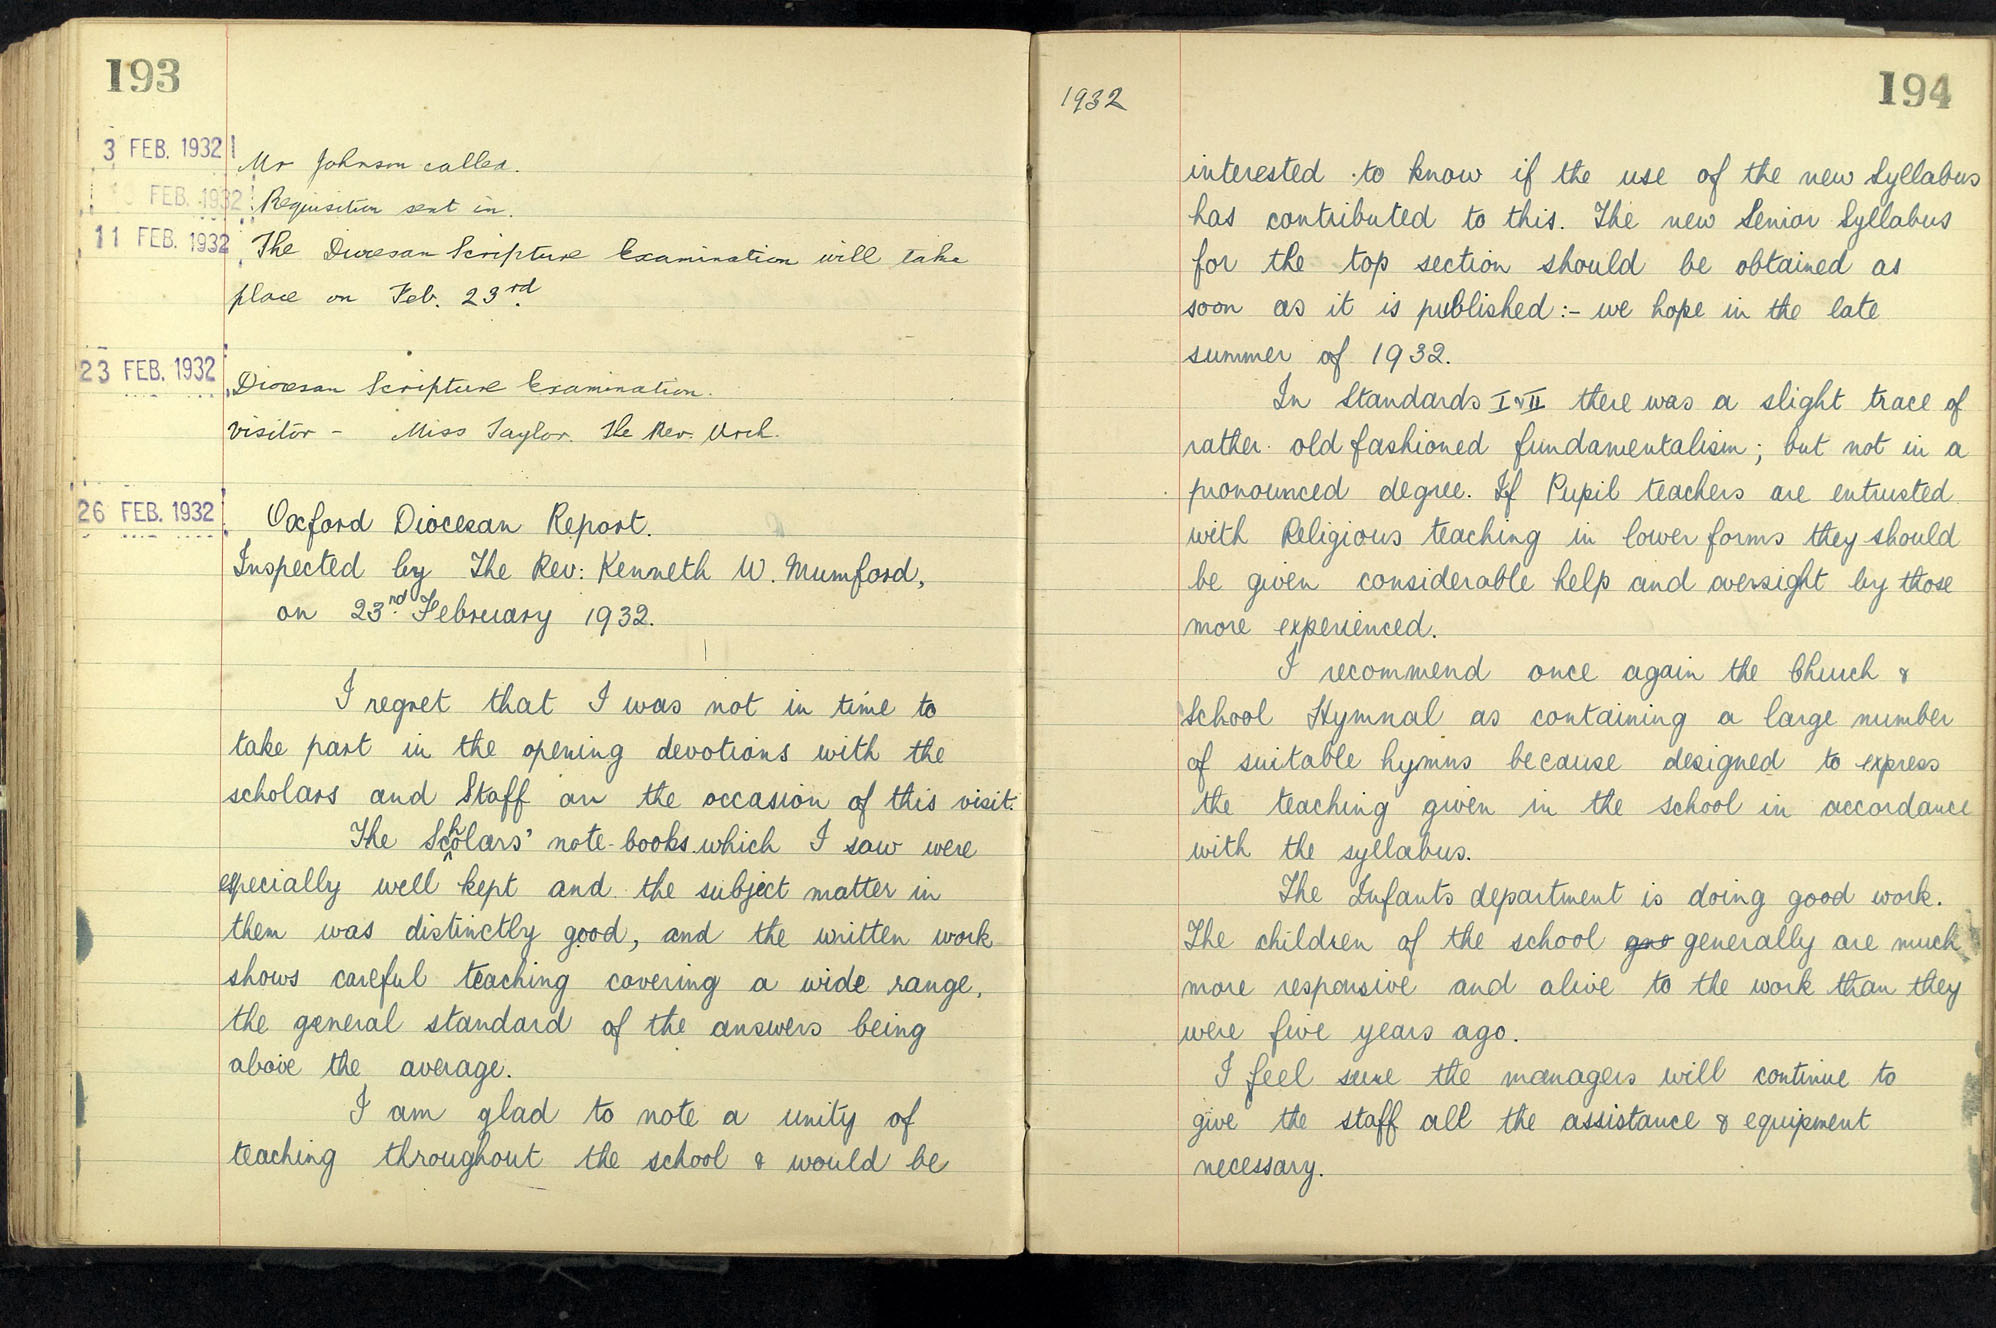 193
3 FEB. 1932 Mr Johnson called.
FEB. 1932 Requisition sent in.
11 FEB. 1932 The Diocesan Scripture Examination will take
place on Feb. 23rd.
23 FEB. 1932 Diocesan Scripture Examination.
Visitor - Miss Taylor. The Rev.
26 FEB. 1932 Oxford Diocesan Report.
Inspected by The Rev: Kenneth W. Mumford,
on 23nd. February 1932.
I regret that I was not in time to
take part in the opening devotions with the
scholars and Staff on the occasion of this visit.
The Scholars' note-books which I saw were
especially well kept and the subject matter in
them was distinctly good, and the written work
shows careful teaching covering a wide range,
the general standard of the answers being
above the average.
I am glad to note a unity of
teaching throughout the school & would be
194
1932
interested to know if the use of the new Syllabus
has contributed to this. The new Senior Syllabus
for the top section should be obtained as
soon as it is published :- we hope in the late
summer of 1932.
In Standards I & II there was a slight trace of
rather old fashioned fundamentalism; but not in a
pronounced degree. If Pupil teachers are entrusted
with Religious teaching in lower forms they should
be given considerable help and oversight by those
more experienced.
I recommend once again the Church &
School Hymnal as containing a large number
of suitable hymns because designed to express
the teaching given in the school in accordance
with the syllabus.
The Infants department is doing good work.
The children of the school generally are much
more responsive and alive to the work than they
were five years ago.
I feel sure the managers will continue to
give the staff all the assistance & equipment
necessary.